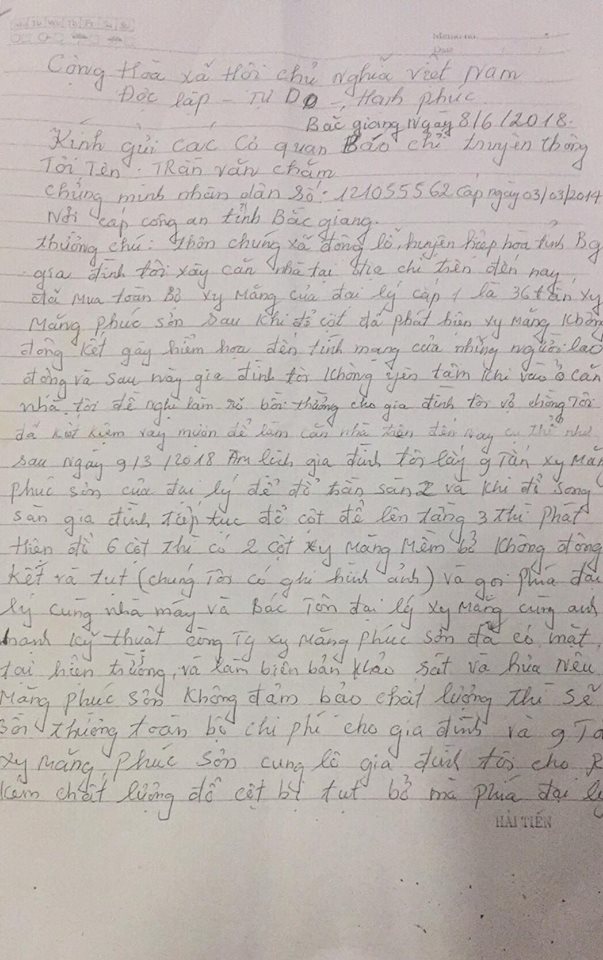 Cộng Hoà xã Hội chủ nghĩa việt Nam
Độc lập - Tự DO - Hạnh phúc
Bắc giang Ngày 8/6/2018.
Kính gửi các cơ quan Báo chí truyền thông
Tôi Tên : TRần văn chắm
chứng minh nhân dân số : 121055562 cấp ngày 03/03/2014
Nơi cấp công an tỉnh Bắc giang.
thường chú : thôn chúng xã đông lỗ, huyện hiệp hòa tỉnh Bg
gia đình tôi xây căn nhà tại địa chỉ trên đến nay
đã Mua toàn Bộ xy Măng của đại lý cấp 1 là 36 tấn xy
Măng phúc sơn sau khi đổ cột đã phát hiện xy Măng không
đông kết gây hiểm họa đến tính mạng của những người lao
động và sau này gia đình tôi không yên tâm khi vào ở căn
nhà, tôi đề nghị làm rõ bồi thường cho gia đình tôi vợ chồng Tôi
đã kiệt kiệm vay mượn để làm căn nhà trên đến nay cụ thể như
sau Ngày 9/3/2018 Âm lịch gia đình tôi lấy 9 Tấn xy Măng
phúc sơn của đại lý để đổ trần sàn 2 và khi đổ song
sàn gia đình tiếp tục đổ cột để lên tầng 3 thì phát
hiện đổ 6 cột thì có 2 cột xy Măng Mềm bở không đông
kết và tụt (chúng Tôi có ghi hình ảnh) và gọi phía đại
lý cùng nhà máy và Bác Tôn đại lý xy Măng cùng anh
hạnh kỹ thuật công Ty xy Măng phúc sơn đã có mặt
tại hiện trường, và làm biên bản khảo sát và hứa nếu
Măng phúc sơn không đảm bảo chất lượng thì sẽ
Bồi thường toàn bộ chi phí cho gia đình và 9 Tấ
xy Măng, phúc sơn cùng lô gia đình tôi cho
kém chất lượng đổ cột bị tụt bở mà phía đại lý
HẢI TIẾN